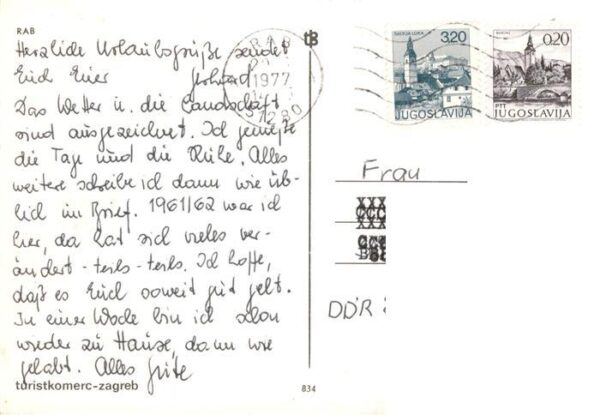 RAB
Herzliche Urlaubsgrüße sendet
Euch Euer Gerhard
Das Wetter u. die Landschaft
sind ausgezeichnet. Ich genieße
die Tage und die Ruhe. Alles
weitere schreibe ich dann wie üb-
lich im Brief. 1961/62 war ich
hier, da hat sich vieles ver-
ändert - teils-teils. Ich hoffe,
daß es Euch soweit gut geht.
In einer Woche bin ich schon
wieder zu Hause, dann wie
gehabt. Alles Gute
turistkomerc-zagreb
834
tB
RAB
1977
51280
ŠKOFJA LOKA
3,20
JUGOSLAVIJA
0,20
PTT
JUGOSLAVIJA
Frau
XXX
CCC
XXX
DDR